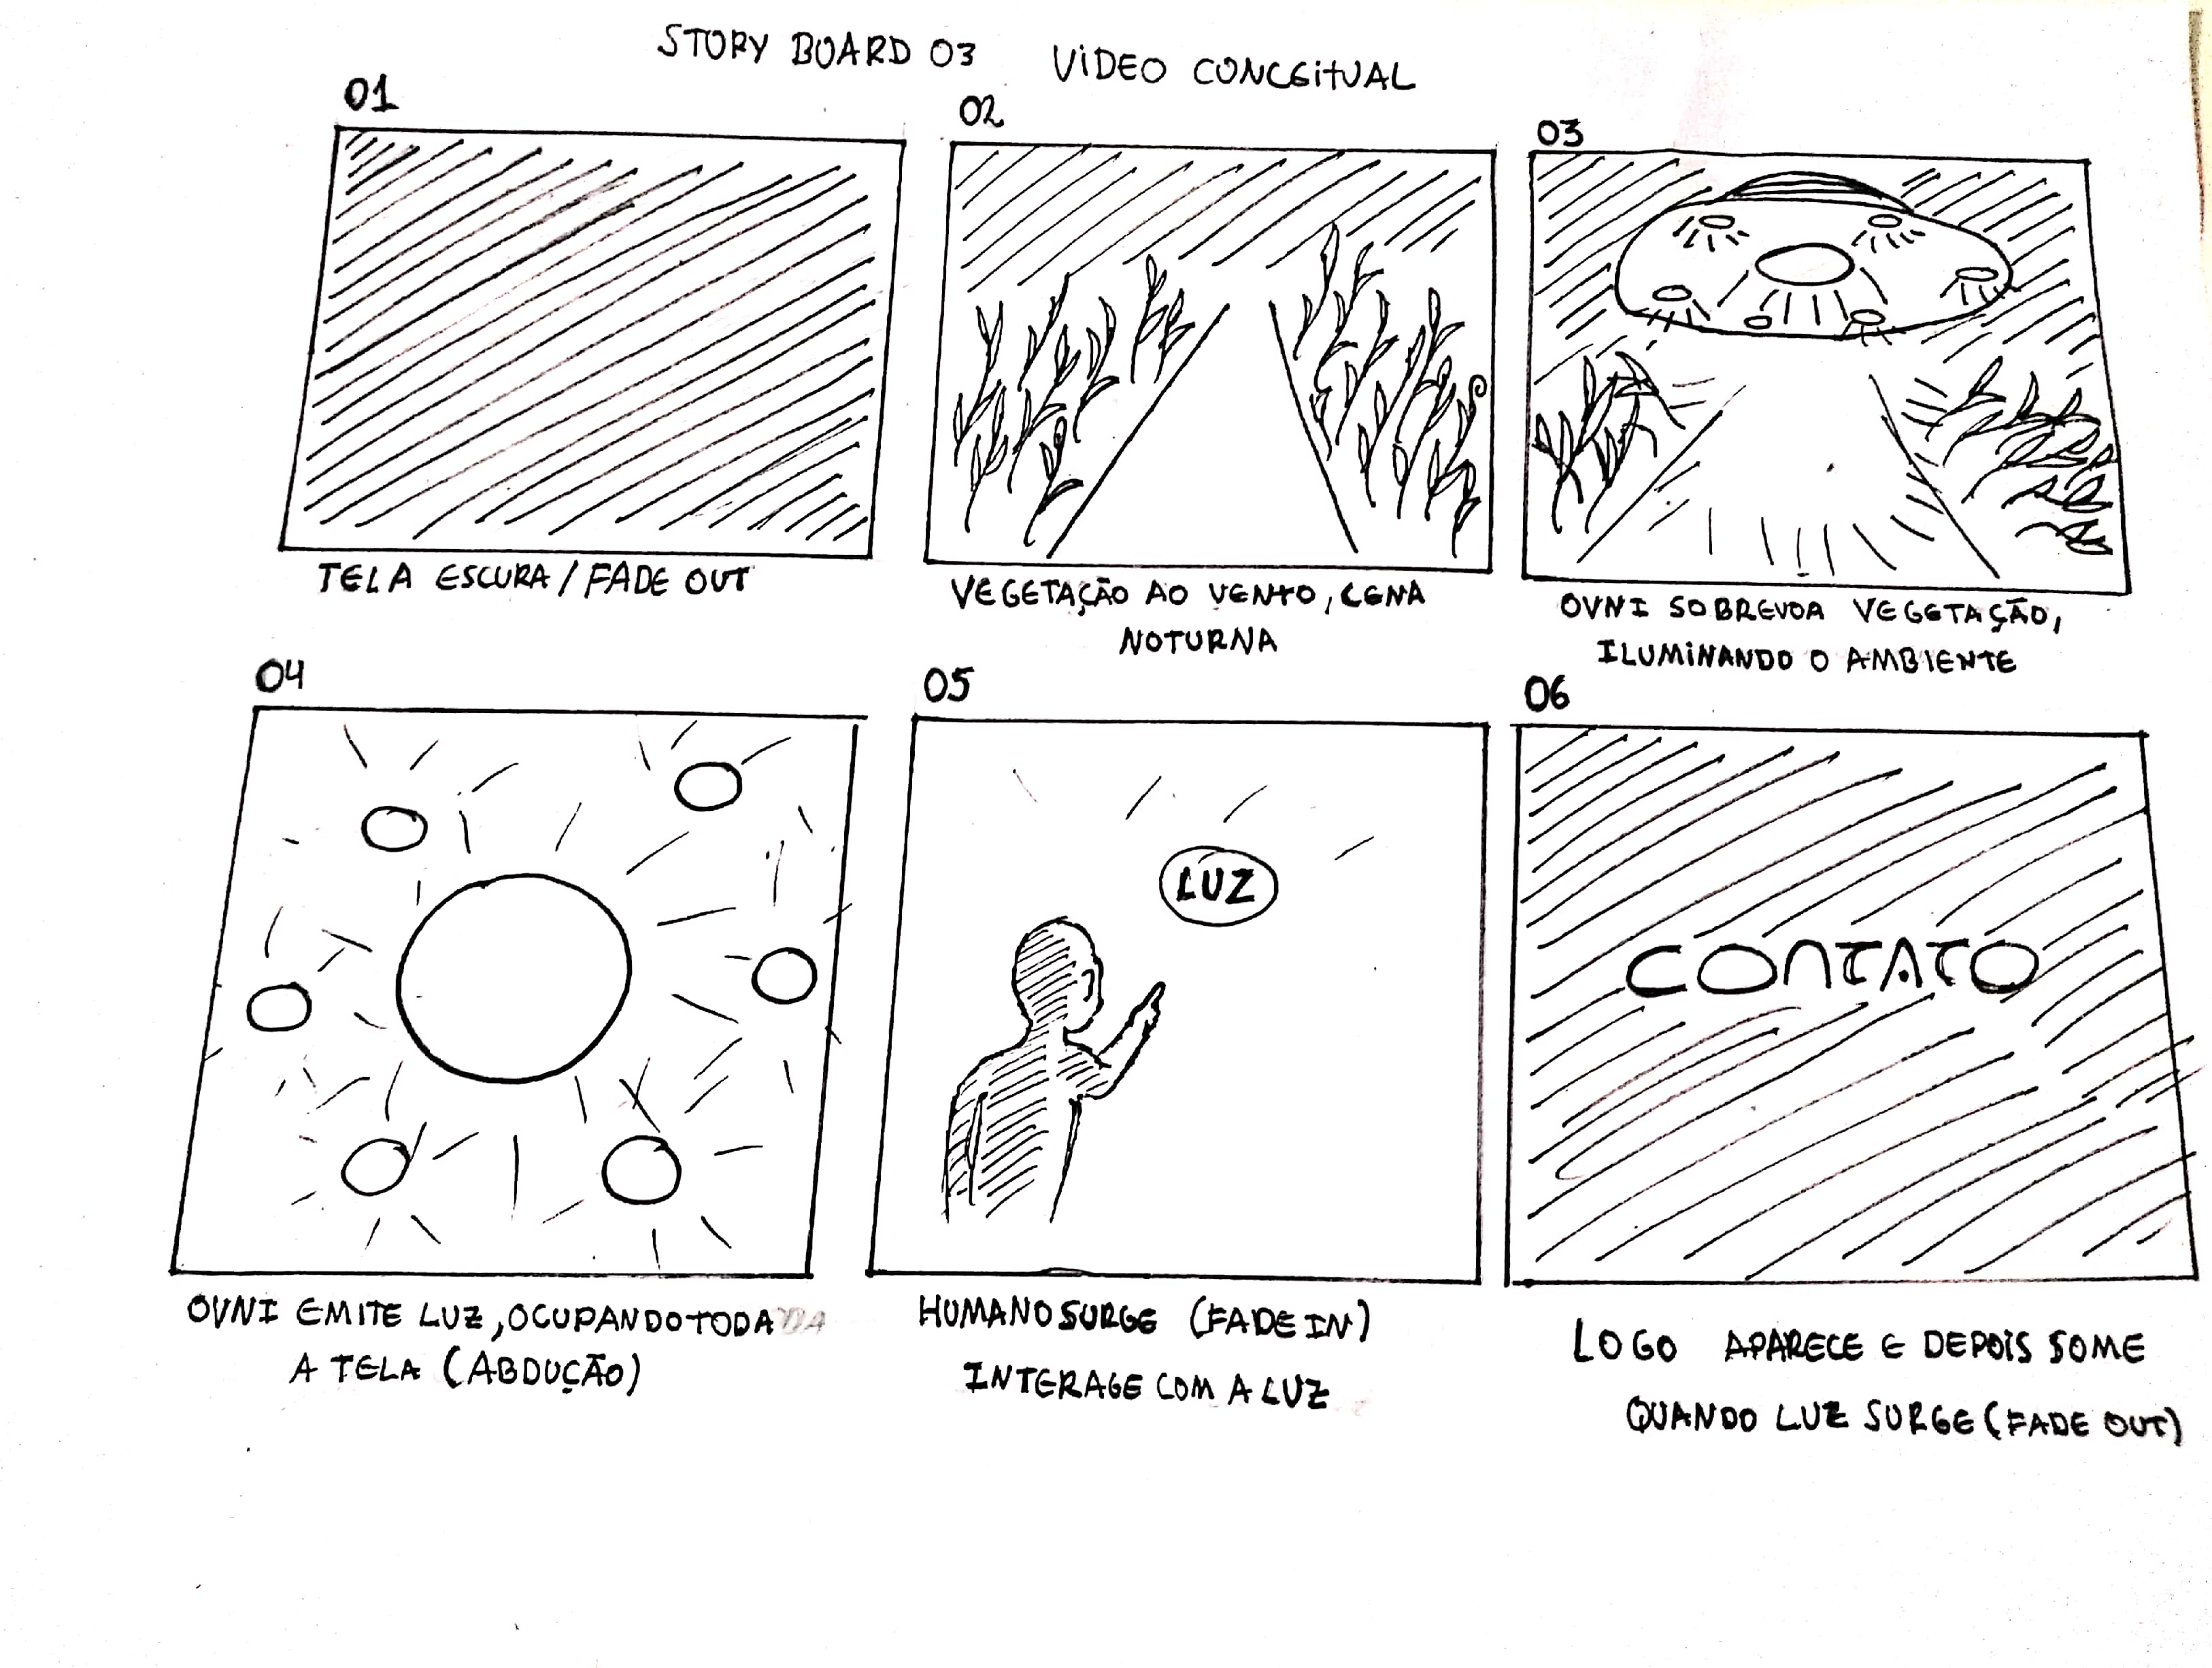 STORY BOARD 03 VIDEO CONCEITUAL
01
TELA ESCURA / FADE OUT
02
VEGETAÇÃO AO VENTO, CENA
NOTURNA
03
OVNI SOBREVOA VEGETAÇÃO,
ILUMINANDO O AMBIENTE
04
OVNI EMITE LUZ, OCUPANDO TODA
A TELA (ABDUÇÃO)
05
LUZ
HUMANO SURGE (FADE IN)
INTERAGE COM A LUZ
06
CONTATO
LOGO APARECE E DEPOIS SOME
QUANDO LUZ SURGE (FADE OUT)